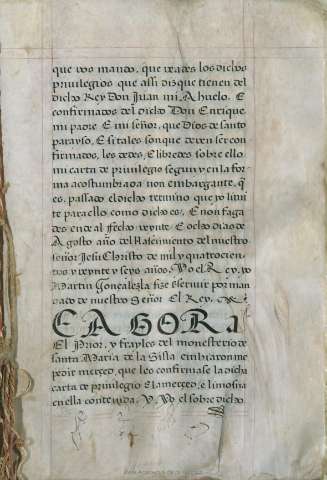 que vos mando, que veades los dichos
privilegios que assi dizque tienen del
dicho Rey Don Juan mi Ahuelo. E
confirmados del dicho Don Enrique
mi padre E mi señor, que Dios de santo
parayso, E si tales son que deven ser con
firmados, les dedes, E libredes sobre ello
mi carta de privilegio segun y en la for
ma acostumbrada non embargante, q̃
es, passado el dicho termino que yo limi
te para ello, como dicho es, E non faga
des ende al Fecho veynte, E ocho dias de
Agosto año del Nascimiento del nuestro
señor Jesu Christo de mil, y quatrocien
tos y veynte y seys años, Yo el Rey, yo
Martin Goncalez la fize escrevir por man
dado de nuestro Señor El Rey.
E AGORA
El Prior, y frayles del monesterio de
santa Maria de la Sisla embiaronme
pedir merced, que les confirmase la dicha
carta de privilegio E la merced, e limosna
en ella contenida, Y Yo el sobre dicho